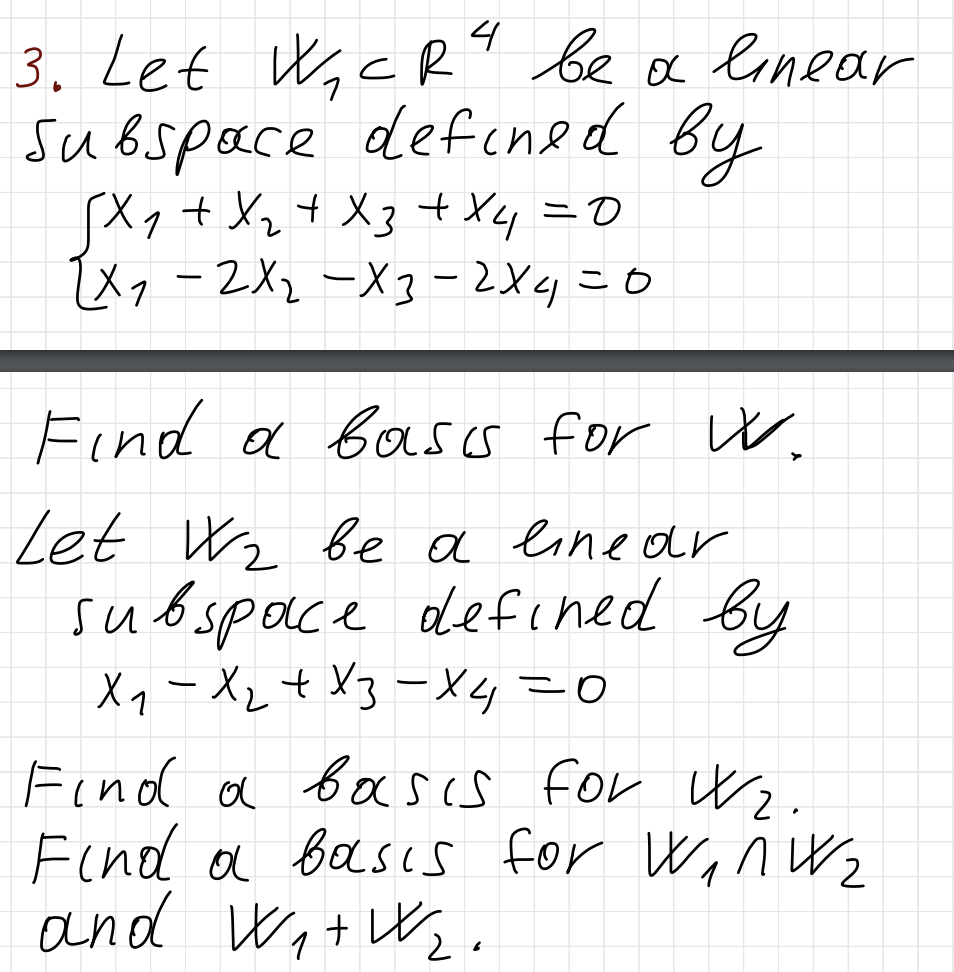 3. Let W₁ ⊂ R⁴ be a linear
subspace defined by
{ x₁ + x₂ + x₃ + x₄ = 0
{ x₁ - 2x₂ - x₃ - 2x₄ = 0
Find a basis for W.
Let W₂ be a linear
subspace defined by
x₁ - x₂ + x₃ - x₄ = 0
Find a basis for W₂.
Find a basis for W₁ ∩ W₂
and W₁ + W₂.